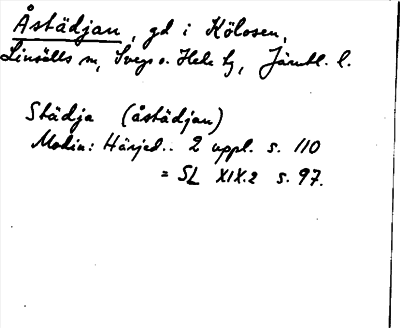 Åstädjan, gd i Kölosen,
Linsälls sn, Svegs o. Hede tg, Jämtl. l.
Städja (åstädjan)
Modin: Härjed.. 2 uppl. s. 110
= SL XIX.2 s. 97.